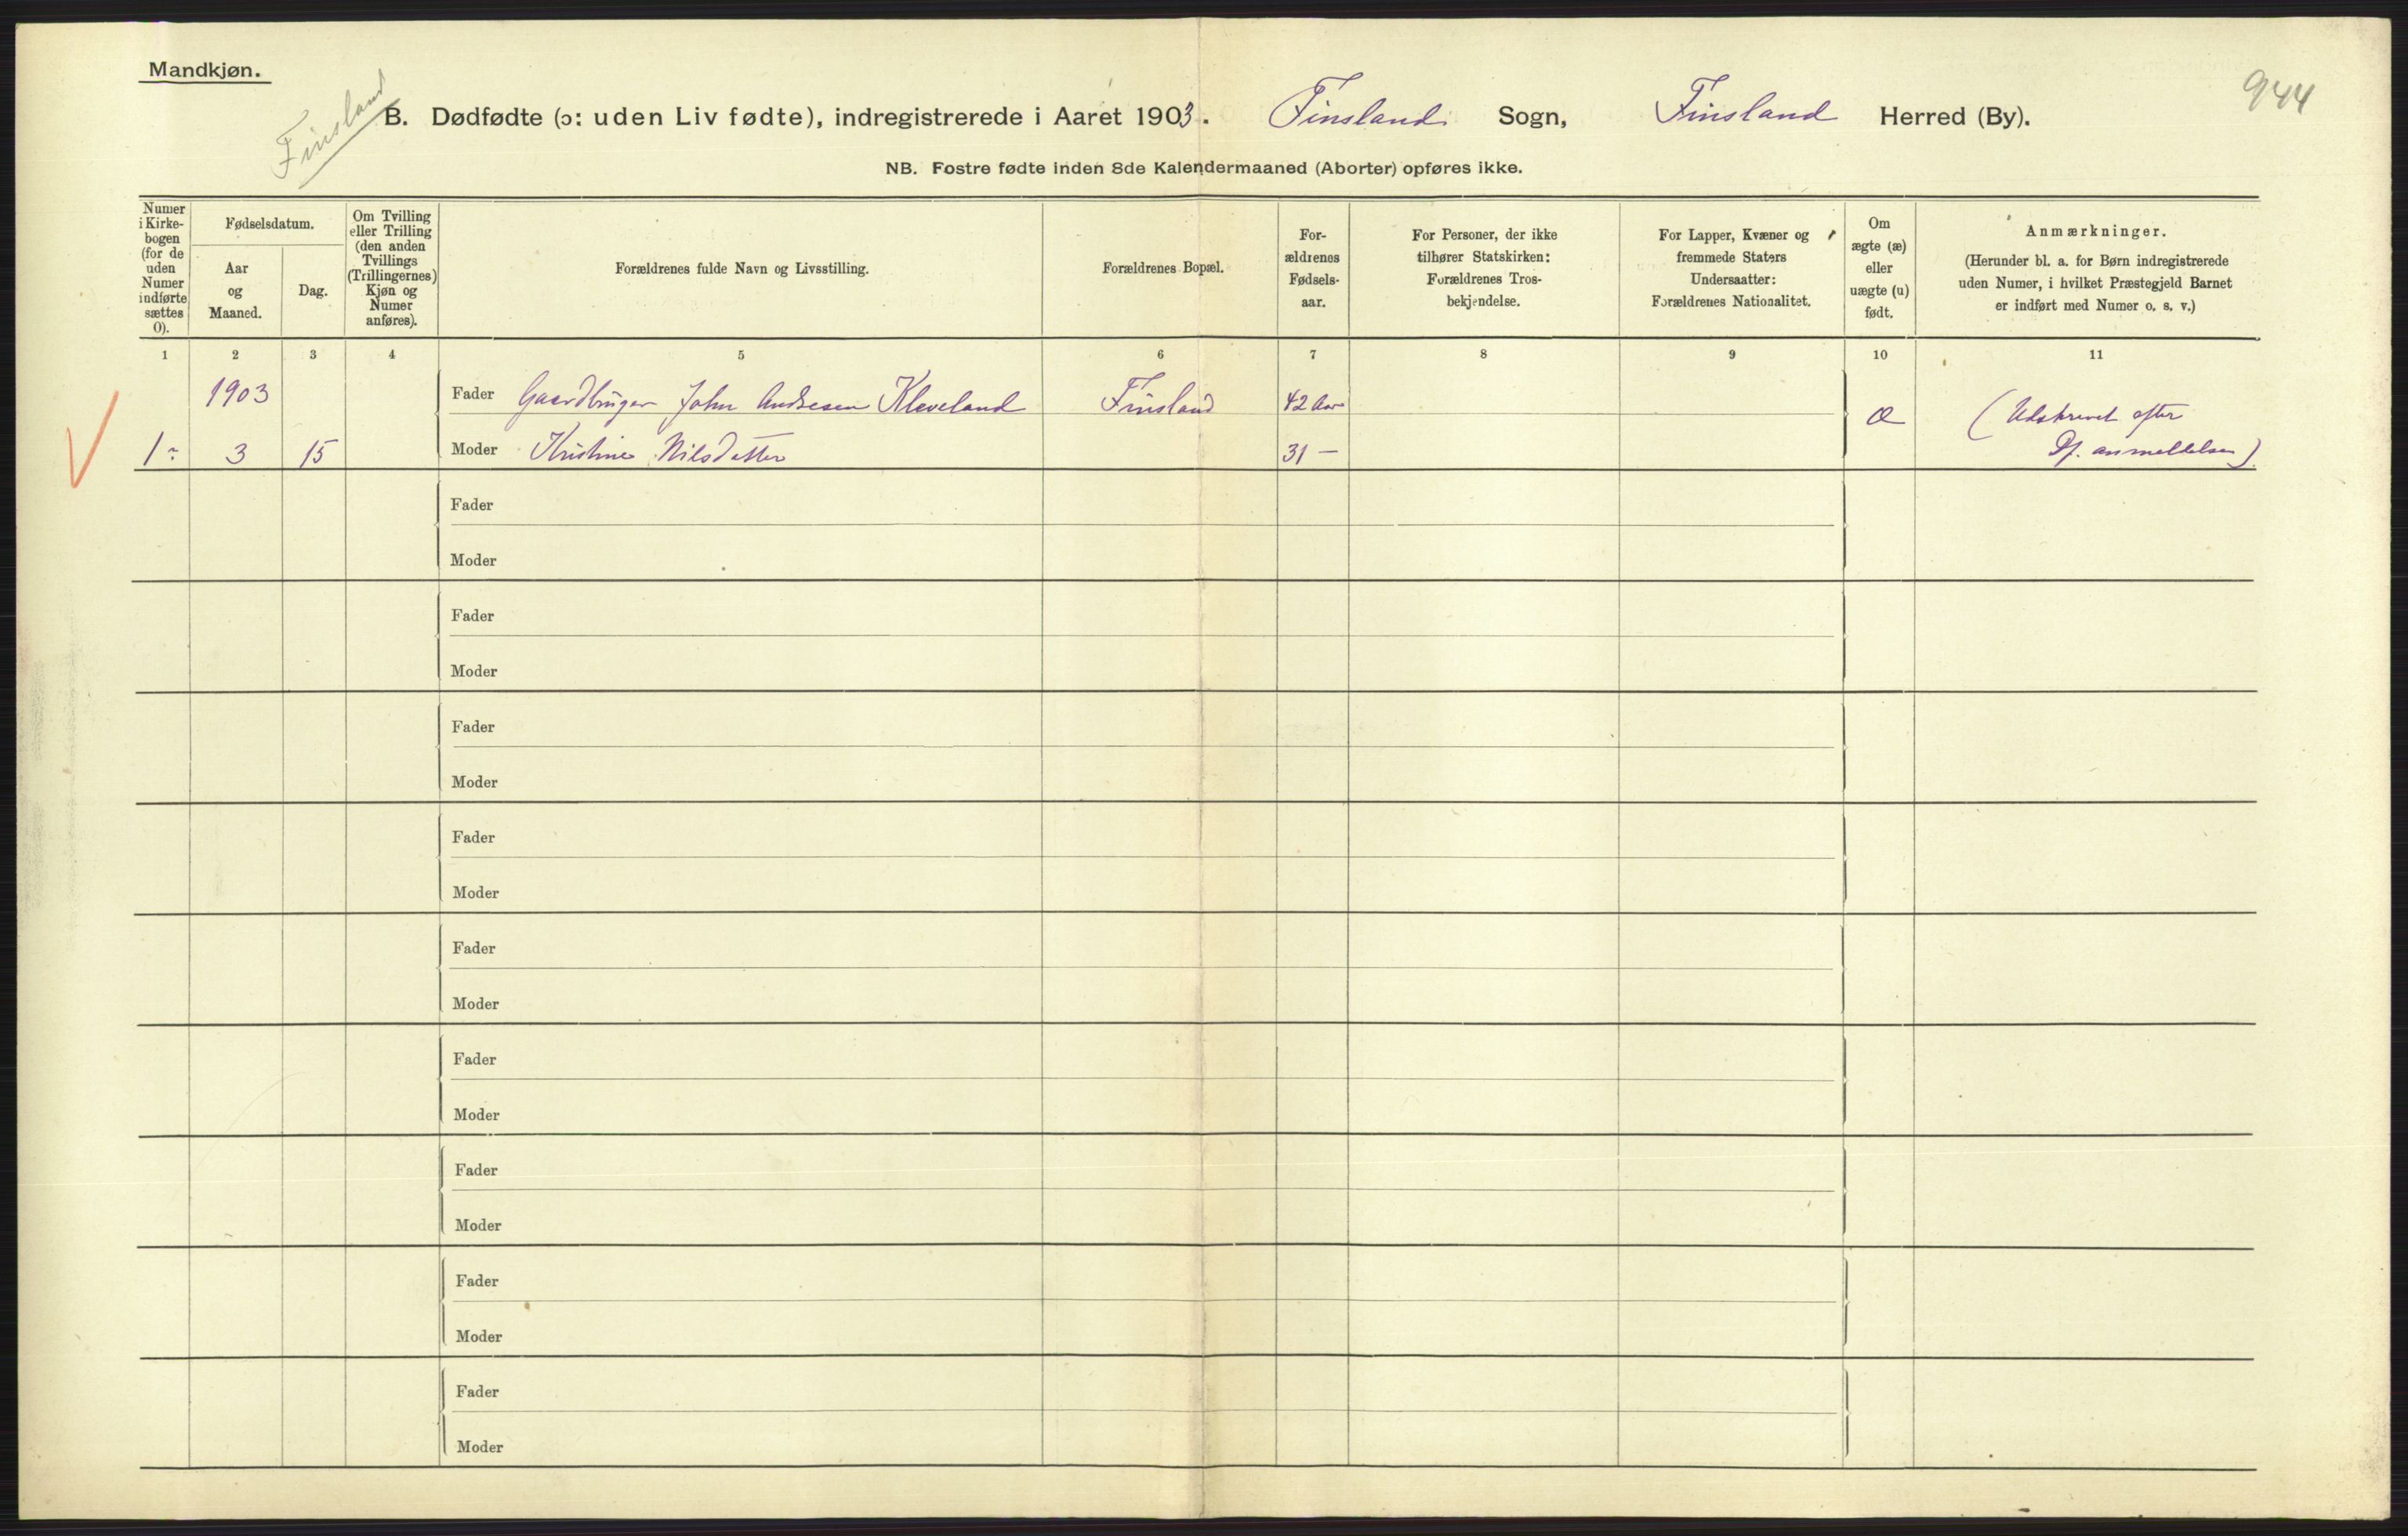 Mandkjøn.
Finsland
944
B. Dødfødte (ɔ: uden Liv fødte), indregistrerede i Aaret 1903. Finsland Sogn, Finsland Herred (By).
NB. Fostre fødte inden 8de Kalendermaaned (Aborter) opføres ikke.
Numer
i Kirke-
bogen
(for de
uden
Numer
indførte
sættes
0).
Fødselsdatum.
Aar
og
Maaned.
Dag.
Om Tvilling
eller Trilling
(den anden
Tvillings
(Trillingernes)
Kjøn og
Numer
anføres).
Forældrenes fulde Navn og Livsstilling.
Forældrenes Bopæl.
For-
ældrenes
Fødsels-
aar.
For Personer, der ikke
tilhører Statskirken:
Forældrenes Tros-
bekjendelse.
For Lapper, Kvæner og
fremmede Staters
Undersaatter:
Forældrenes Nationalitet.
Om
ægte (æ)
eller
uægte (u)
født.
Anmærkninger.
(Herunder bl. a. for Børn indregistrerede
uden Numer, i hvilket Præstegjeld Barnet
er indført med Numer o. s. v.)
1 2 3 4 5 6 7 8 9 10 11
1903 Fader Gaardbruger John Andresen Kleveland Finsland 42 Aar æ (Udskrevet efter
1 3 15 Moder Kristine Nilsdatter 31 — Df. anmeldelsen)
Fader
Moder
Fader
Moder
Fader
Moder
Fader
Moder
Fader
Moder
Fader
Moder
Fader
Moder
Fader
Moder
Fader
Moder